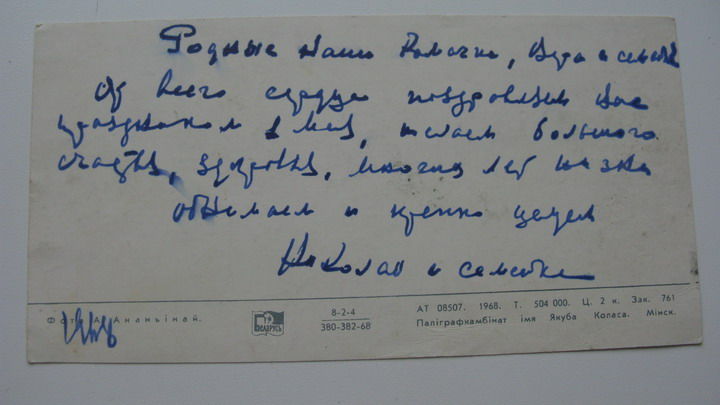 Родные наши Ромочка, Вера и семейка
От всего сердца поздравляем вас
праздником 1 Мая, желаем большого
счастья, здоровья, многих лет жизни
обнимаем и крепко целуем
Николай и семейка
Фота А. Ананьінай.
БЕЛАРУСЬ
8-2-4
380-382-68
АТ 08507. 1968. Т. 504 000. Ц. 2 к. Зак. 761
Паліграфкамбінат імя Якуба Коласа. Мінск.